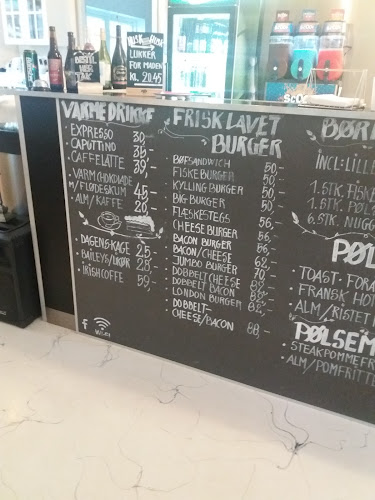 LUKKER
FOR MADEN
KL. 20.45
BESTIL
HER
VARME DRIKKE
EXPRESSO 30,-
CAPUTTINO 35,-
CAFFE LATTE 39,-
VARM CHOKOLADE
M/FLØDESKUM 45,-
ALM/KAFFE 20,-
DAGENS KAGE 25,-
BAILEYS/LIKØR 28,-
IRISH COFFE 59,-
FRISKLAVET
BURGER
BØFSANDWICH 50,-
FISKEBURGER 50,-
KYLLING BURGER 50,-
BIG BURGER 50,-
FLÆSKESTEGS 56,-
CHEESE BURGER 56,-
BACON BURGER 56,-
BACON/CHEESE 62,-
JUMBO BURGER 70,-
DOBBELT CHEESE
DOBBELT BACON
LONDON BURGER
DOBBELT-
CHEESE/BACON 88,-
BØR
INCL: LILLE
1. STK. FISKE
1. STK. PØL
6. STK. NUGG
PØL
TOAST- FORA
FRANSK HOT
ALM/RISTET
PØLSEM
STEAK POMMEFR
ALM/POMFRITTE
f